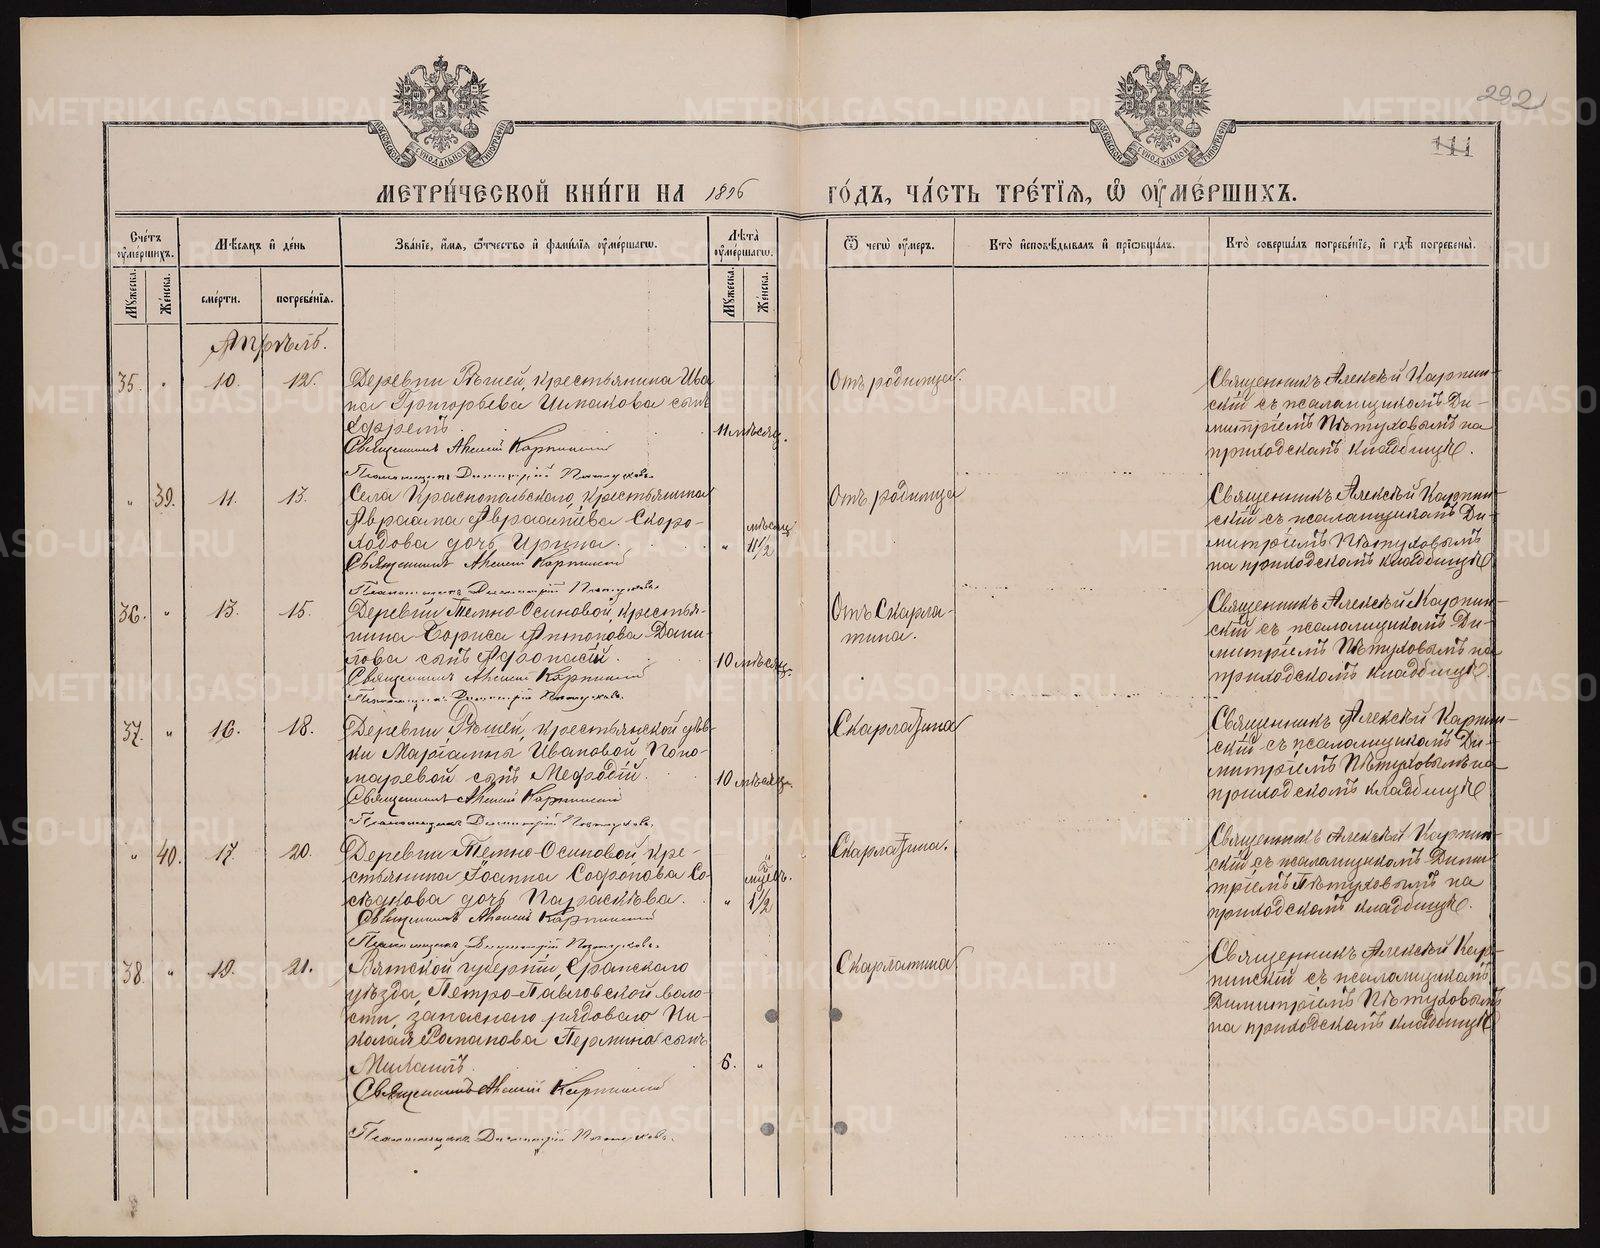 292
111
МЕТРИ́ЧЕСКОЙ КНИ́ГИ НА 1896 ГО́ДЪ, ЧА́СТЬ ТРЕ́ТІѦ, Ѡ҆ ОУ҆МЕ́РШИХЪ.
Сче́тъ оу҆ме́ршихъ.
Мѣ́сѧцъ и҆ де́нь
Зва́нїе, и҆́мѧ, ѻ҆́тчество и҆ фами́лїѧ оу҆ме́ршагѡ.
Лѣ́та оу҆ме́ршагѡ.
Ѿ чегѡ̀ оу҆́меръ.
Кто̀ и҆сповѣ́дывалъ и҆ прїѡбща́лъ.
Кто̀ соверша́лъ погребе́нїе, и҆ гдѣ̀ погребены̀.
Мꙋ́жеска.
Же́нска.
сме́рти.
погребе́нїѧ.
Мꙋ́жеска.
Же́нска.
Апрѣль.
35. " 10. 12.
Деревни Рѣшей, крестьянина Ива
на Григорьева сынъ
Ефремъ. 11 мѣсяц.
Священникъ Алексій Карпинскій
Псаломщикъ Димитрій Пѣтуховъ.
Отъ родимца.
Священникъ Алексѣй Карпин-
скій съ псаломщикомъ Ди-
митріемъ Пѣтуховымъ на
приходскомъ кладбищѣ.
" 39. 11. 13.
Села Краснопольскаго, крестьянина
Авраама Авраамьева Скоро-
ходова дочь Ирина. " мѣсяц. 11½
Священникъ Алексій Карпинскій
Псаломщикъ Димитрій Пѣтуховъ.
Отъ родимца
Священникъ Алексѣй Карпин-
скій съ псаломщикомъ Ди-
митріемъ Пѣтуховымъ
на приходскомъ кладбищѣ
36. " 13. 15.
Деревни Темно-Осиновой, крестья-
нина Бориса Антонова Дани-
лова сынъ Афонасій. 10 мѣсяц.
Священникъ Алексій Карпинскій
Псаломщикъ Димитрій Пѣтуховъ.
Отъ Скарла-
тина.
Священникъ Алексѣй Карпин-
скій съ псаломщикомъ Ди-
митріемъ Пѣтуховымъ на
приходскомъ кладбищѣ.
37. " 16. 18.
Деревни Рѣшей, крестьянской дѣв-
ки Маріамны Ивановой Поно-
маревой сынъ Мефодій. 10 мѣсяц.
Священникъ Алексій Карпинскій
Псаломщикъ Димитрій Пѣтуховъ.
Скарлатина
Священникъ Алексѣй Карпин-
скій съ псаломщикомъ Ди-
митріемъ Пѣтуховымъ на
приходскомъ кладбищѣ
" 40. 17. 20.
Деревни Темно-Осиновой, кре-
стьянина Іоанна Софонова Со-
сѣдкова дочь Параскѣва. " 1½
Священникъ Алексій Карпинскій
Псаломщикъ Димитрій Пѣтуховъ.
Скарлатина.
Священникъ Алексѣй Карпин-
скій съ псаломщикомъ Дими-
тріемъ Пѣтуховымъ на
приходскомъ кладбищѣ.
38. " 19. 21.
Вятской губерніи, Яранского
уѣзда, Петро-Павловской воло-
сти, запаснаго рядоваго Ни-
колая Романова Пермина сынъ
6. "
Священникъ Алексій Карпинскій
Псаломщикъ Димитрій Пѣтуховъ.
Скарлатина
Священникъ Алексѣй Кар-
пинскій съ псаломщикомъ
Димитріемъ Пѣтуховымъ
на приходскомъ кладбищѣ
METRIKI.GASO-URAL.RU